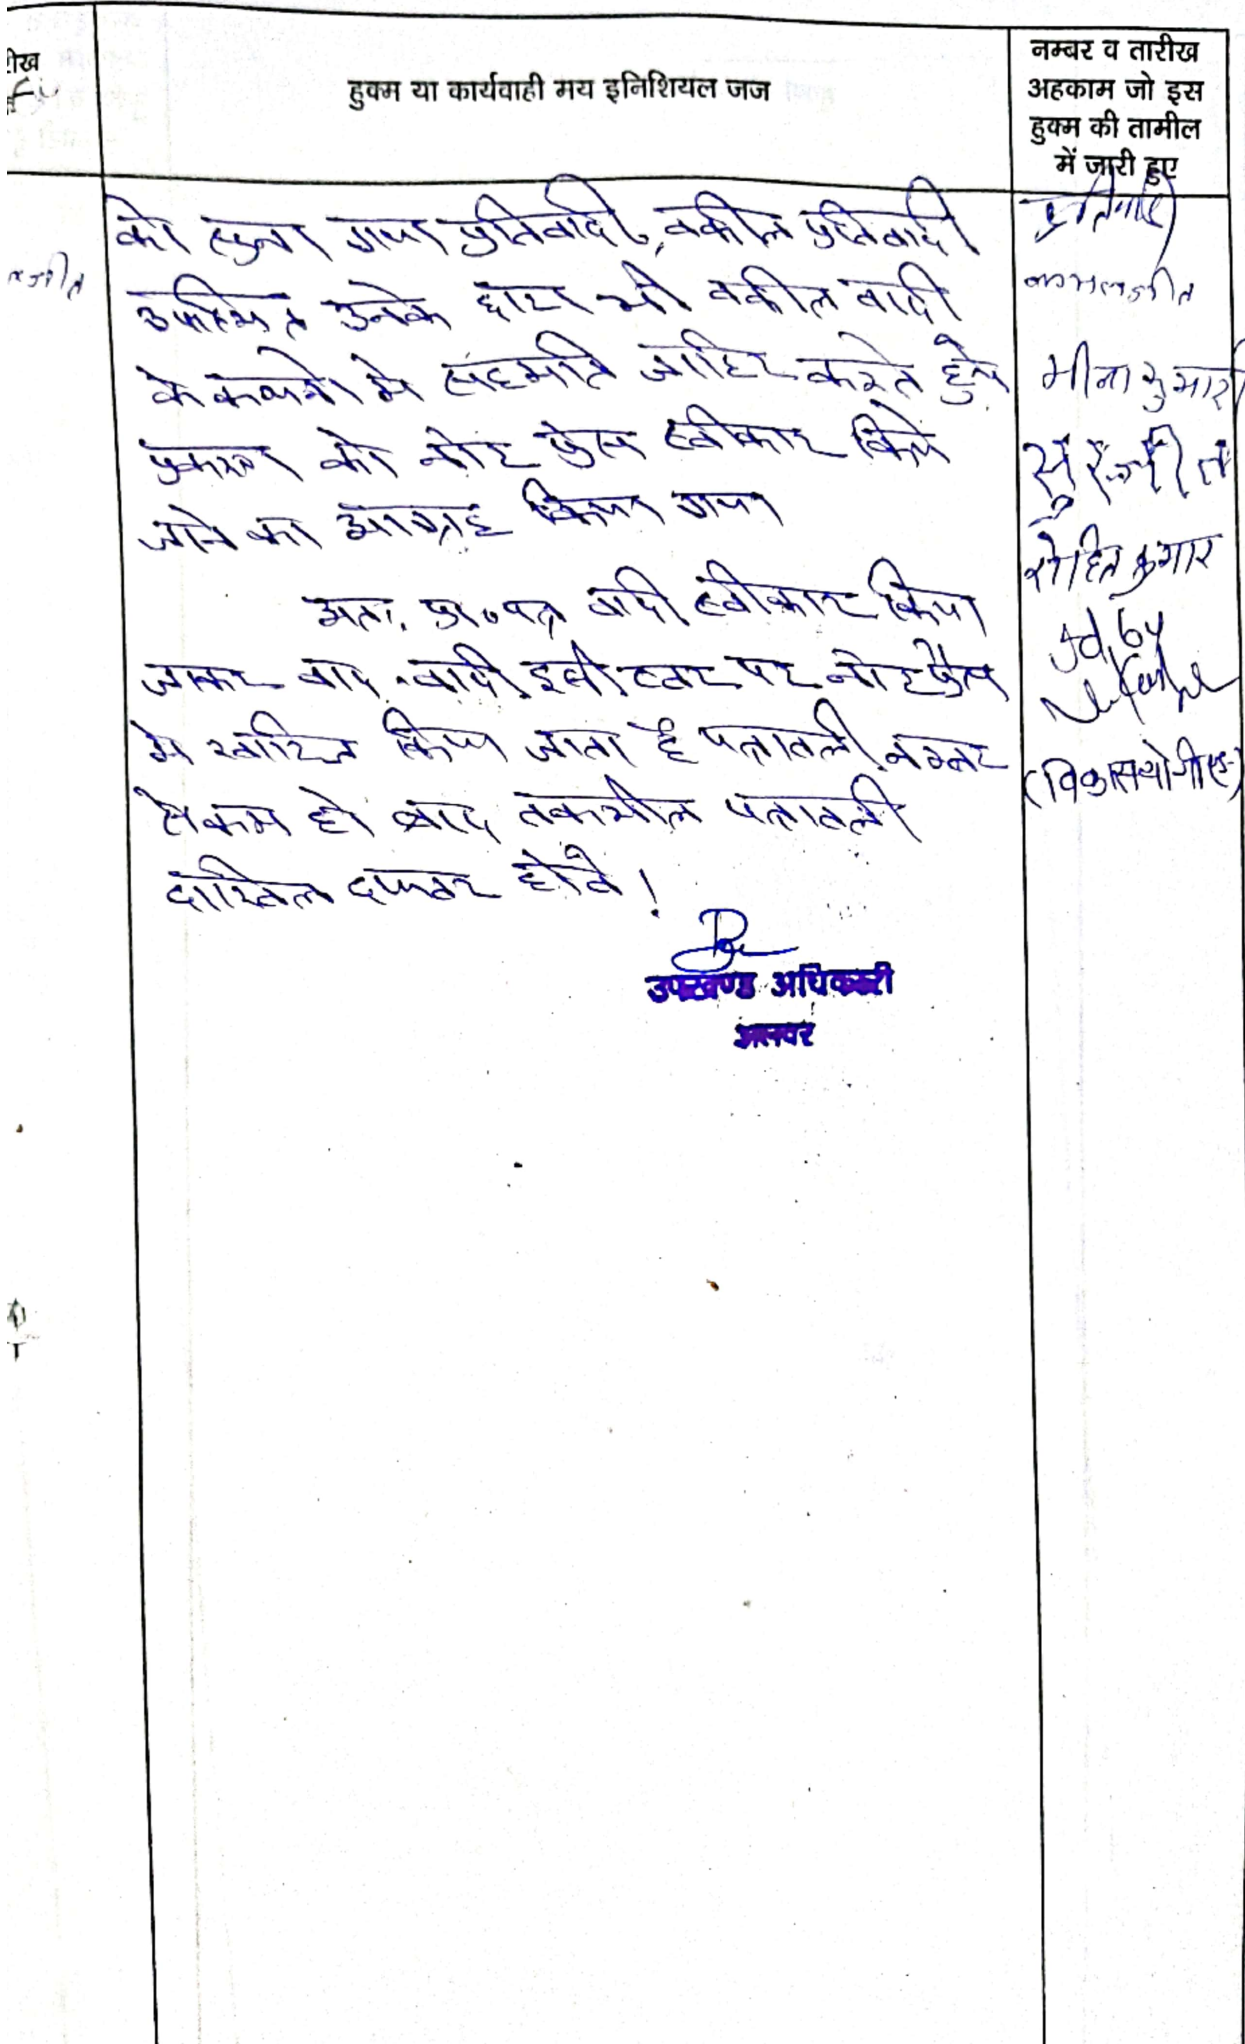 रीख
हुक्म या कार्यवाही मय इनिशियल जज
नम्बर व तारीख
अहकाम जो इस
हुक्म की तामील
में जारी हुए
को सुना गया प्रतिवादी, वकील प्रतिवादी
उपस्थित उनके द्वारा भी वकील वादी
के कथनो मे सहमति जाहिर करते हुये
प्रकरण को नोट प्रेस स्वीकार किये
जाने का आग्रह किया गया
अतः प्रा०पत्र वादी स्वीकार किया
जाकर वाद वादी इसी स्तर पर नोट प्रेस
मे खारिज किया जाता है पत्रावली नम्बर
से कम हो बाद तकमील पत्रावली
दाखिल दफ्तर होवे।
उपखण्ड अधिकारी
अलवर
प्रतिवादी
कमलजीत
मीना कुमारी
सुरजीत
रोहित कुमार
Id. by